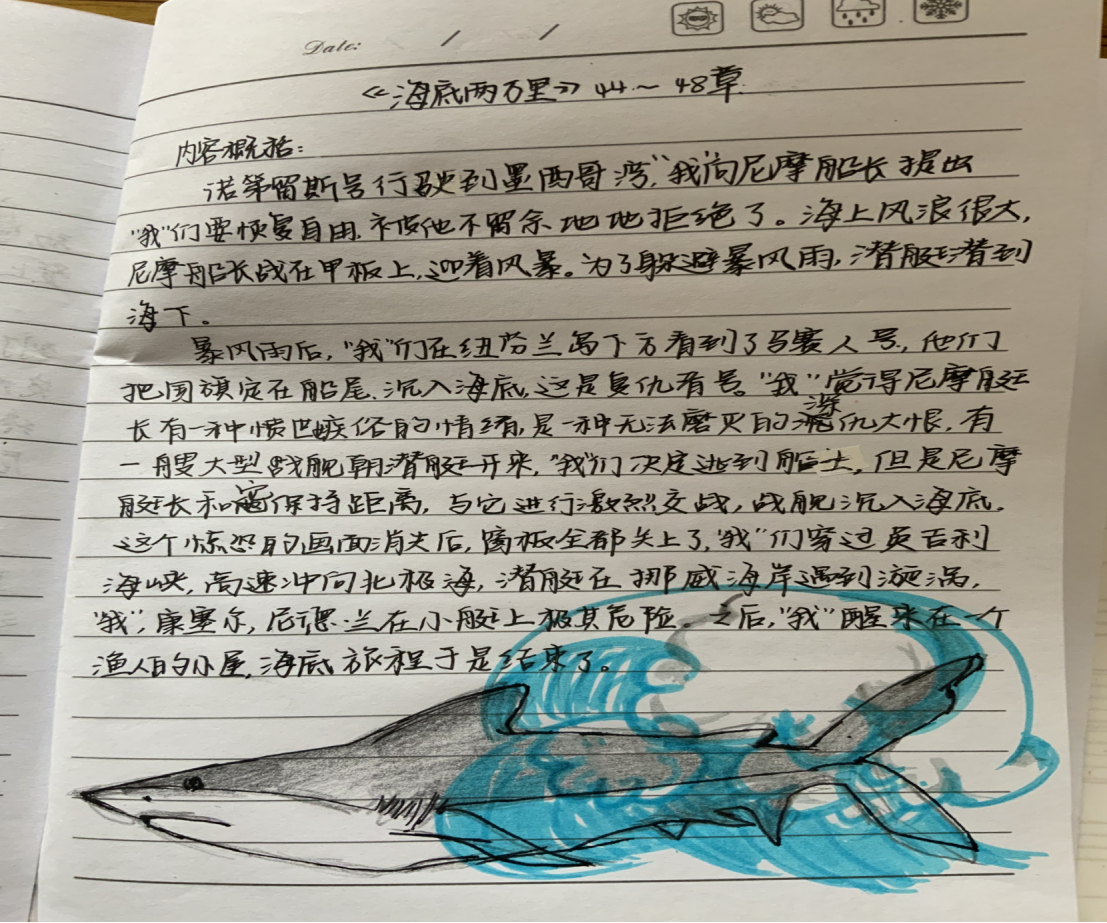 Date: / /
《海底两万里》44~48章
内容概括:
诺第留斯号行驶到墨西哥湾,"我"向尼摩船长提出
"我"们要恢复自由,被他不留余地地拒绝了。海上风浪很大,
尼摩船长战在甲板上,迎着风暴。为了躲避暴风雨,潜艇潜到
海下。
暴风雨后,"我"们在纽芬兰岛下方看到了马赛人号,他们
把国旗定在船尾,沉入海底,这是复仇者号。"我"觉得尼摩艇
长有一种愤世嫉俗的情绪,是一种无法磨灭的深仇大恨,有
一艘大型战舰朝潜艇开来,"我"们决定逃到船上,但是尼摩
艇长和它保持距离,与它进行激烈交战,战舰沉入海底。
这个惊恐的画面消失后,窗板全都关上了,"我"们穿过英吉利
海峡,高速冲向北极海,潜艇在挪威海岸遇到漩涡,
"我",康塞尔,尼德·兰在小艇上极其危险。之后,"我"醒来在一个
渔人的小屋,海底旅程于是结束了。